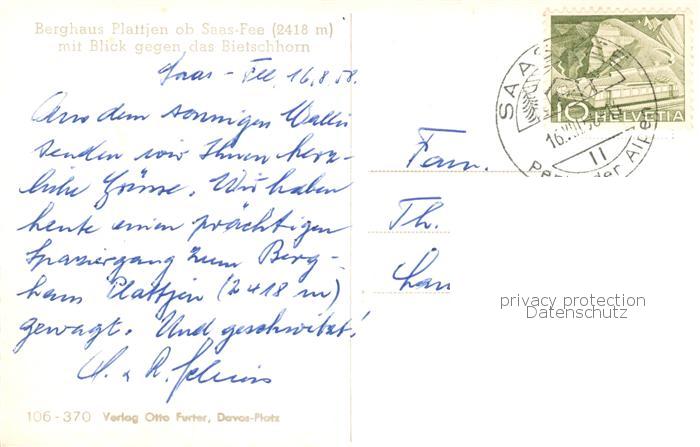 Berghaus Plattjen ob Saas-Fee (2418 m)
mit Blick gegen das Bietschhorn
Saas-Fee, 16.8.58.
Aus dem sonnigen Wallis
senden wir Ihnen herz-
liche Grüsse. Wir haben
heute einen prächtigen
Spaziergang zum Berg-
haus Plattjen (2418 m)
gewagt. Und geschwitzt!
106-370 Verlag Otto Furter, Davos-Platz
10 HELVETIA
SAAS-FEE
16.VIII.58
II
Perle der Alpen
Fam.
Th.
privacy protection
Datenschutz